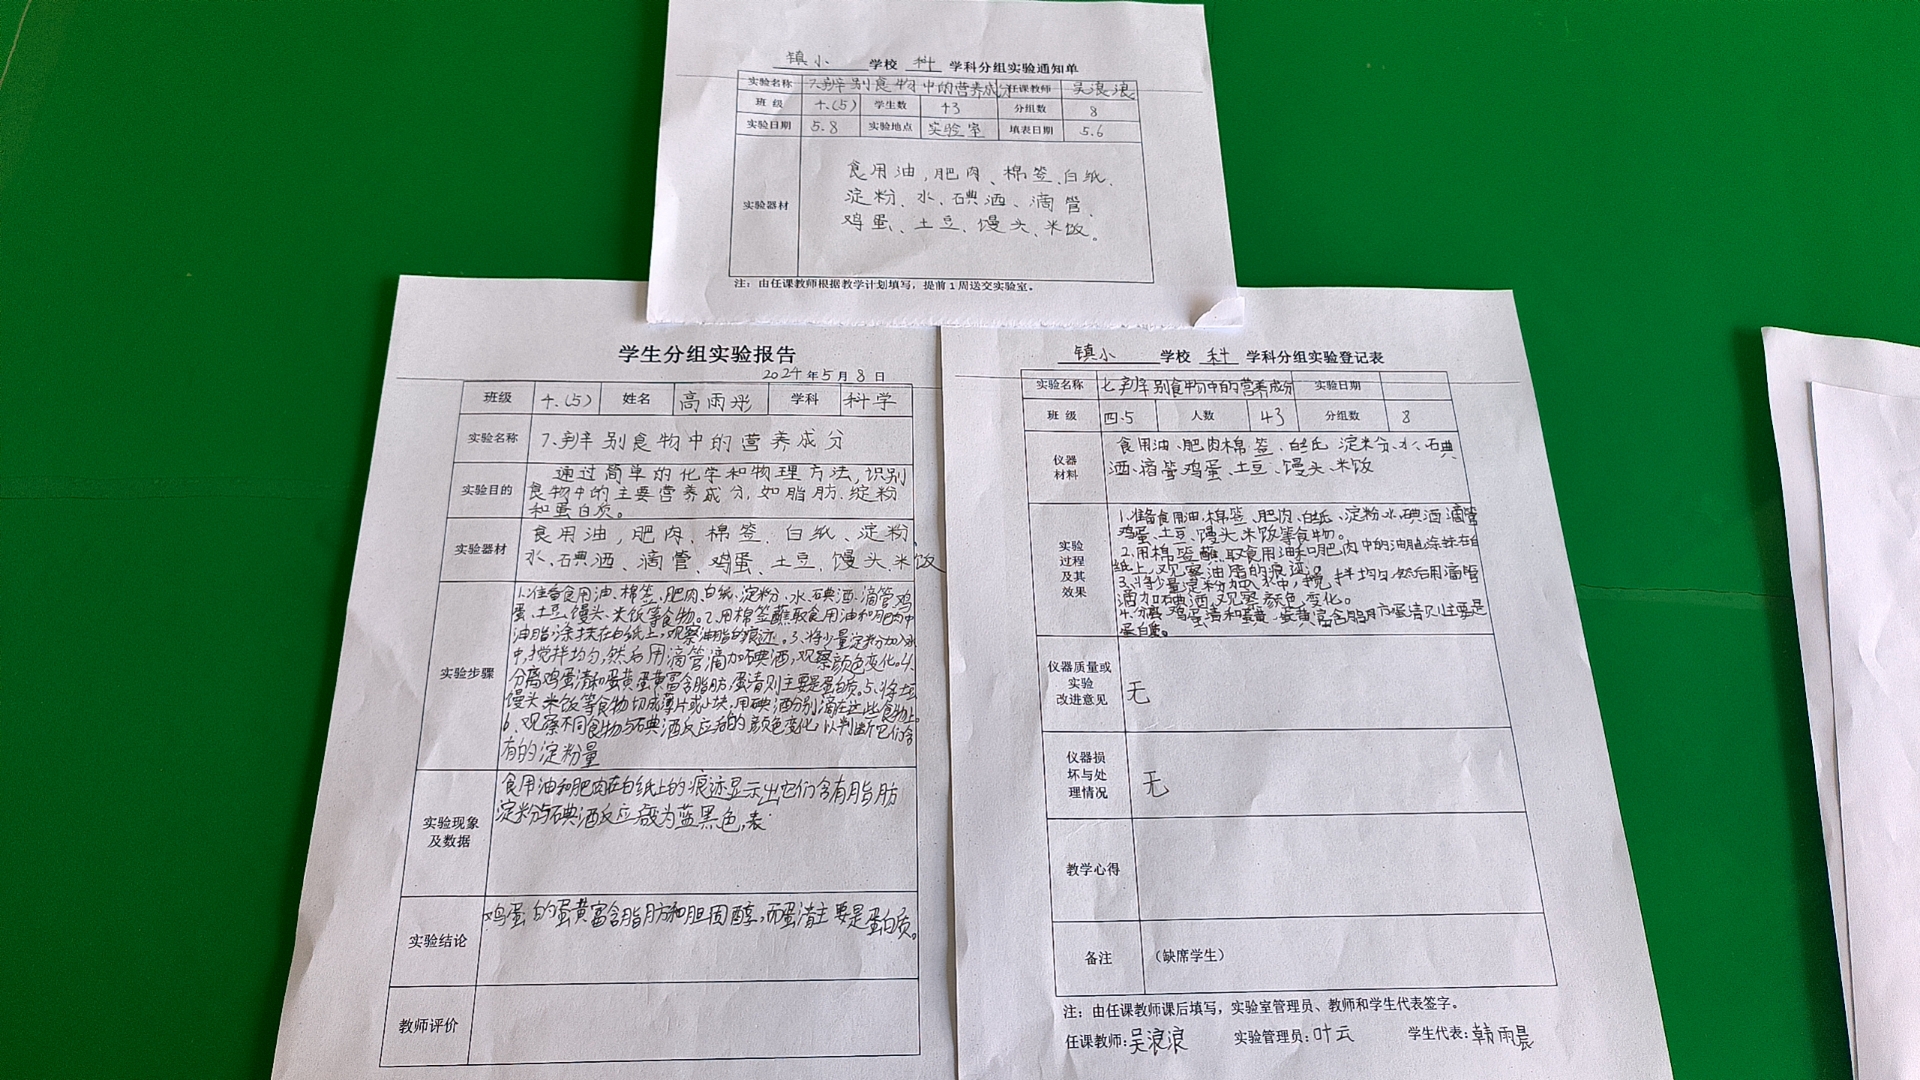 镇小 学校 科 学科分组实验通知单
实验名称 7.辨别食物中的营养成分 任课教师 吴浪浪
班 级 4.(5) 学生数 43 分组数 8
实验日期 5.8 实验地点 实验室 填表日期 5.6
实验器材
食用油,肥肉、棉签、白纸、
淀粉、水、碘酒、滴管、
鸡蛋、土豆、馒头、米饭。
注：由任课教师根据教学计划填写，提前1周送交实验室。
学生分组实验报告
2024年5月8日
班级 4.(5) 姓名 高雨彤 学科 科学
实验名称 7.辨别食物中的营养成分
实验目的
通过简单的化学和物理方法,识别
食物中的主要营养成分,如脂肪、淀粉
和蛋白质。
实验器材
食用油,肥肉、棉签、白纸、淀粉、
水、碘酒、滴管、鸡蛋、土豆、馒头、米饭
实验步骤
1.准备食用油、棉签、肥肉、白纸、淀粉、水、碘酒、滴管、鸡
蛋、土豆、馒头、米饭等食物。2.用棉签蘸取食用油和肥肉中
油脂涂抹在白纸上,观察油脂的痕迹。3.将少量淀粉加入水
中,搅拌均匀,然后用滴管滴加碘酒,观察颜色变化。4.
分离鸡蛋清和蛋黄,蛋黄富含脂肪,蛋清则主要是蛋白质。5.将土豆
馒头、米饭等食物切成薄片或小块,用碘酒分别滴在这些食物上。
6、观察不同食物与碘酒反应后的颜色变化,以判断它们含
有的淀粉量
实验现象
及数据
食用油和肥肉在白纸上的痕迹显示出它们含有脂肪
淀粉与碘酒反应成为蓝黑色,表
实验结论
鸡蛋的蛋黄富含脂肪和胆固醇,而蛋清主要是蛋白质。
教师评价
镇小 学校 科 学科分组实验登记表
实验名称 七辨别食物中的营养成分 实验日期
班 级 四.5 人数 43 分组数 8
仪器
材料
食用油、肥肉棉签、白纸、淀粉、水、碘
酒、滴管鸡蛋、土豆、馒头、米饭
实验
过程
及其
效果
1.准备食用油、棉签、肥肉、白纸、淀粉水、碘酒滴管
鸡蛋、土豆、馒头、米饭等食物。
2.用棉签蘸取食用油和肥肉中的油脂涂抹在白
纸上,观察油脂的痕迹。
3.将少量淀粉加入水中,搅拌均匀,然后用滴管
滴加碘酒,观察颜色变化。
4.分离鸡蛋清和蛋黄,蛋黄富含脂肪,蛋清则主要是
蛋白质。
仪器质量或
实验
改进意见
无
仪器损
坏与处
理情况
无
教学心得
备注 （缺席学生）
注：由任课教师课后填写，实验室管理员、教师和学生代表签字。
任课教师:吴浪浪 实验管理员:叶云 学生代表:韩雨晨